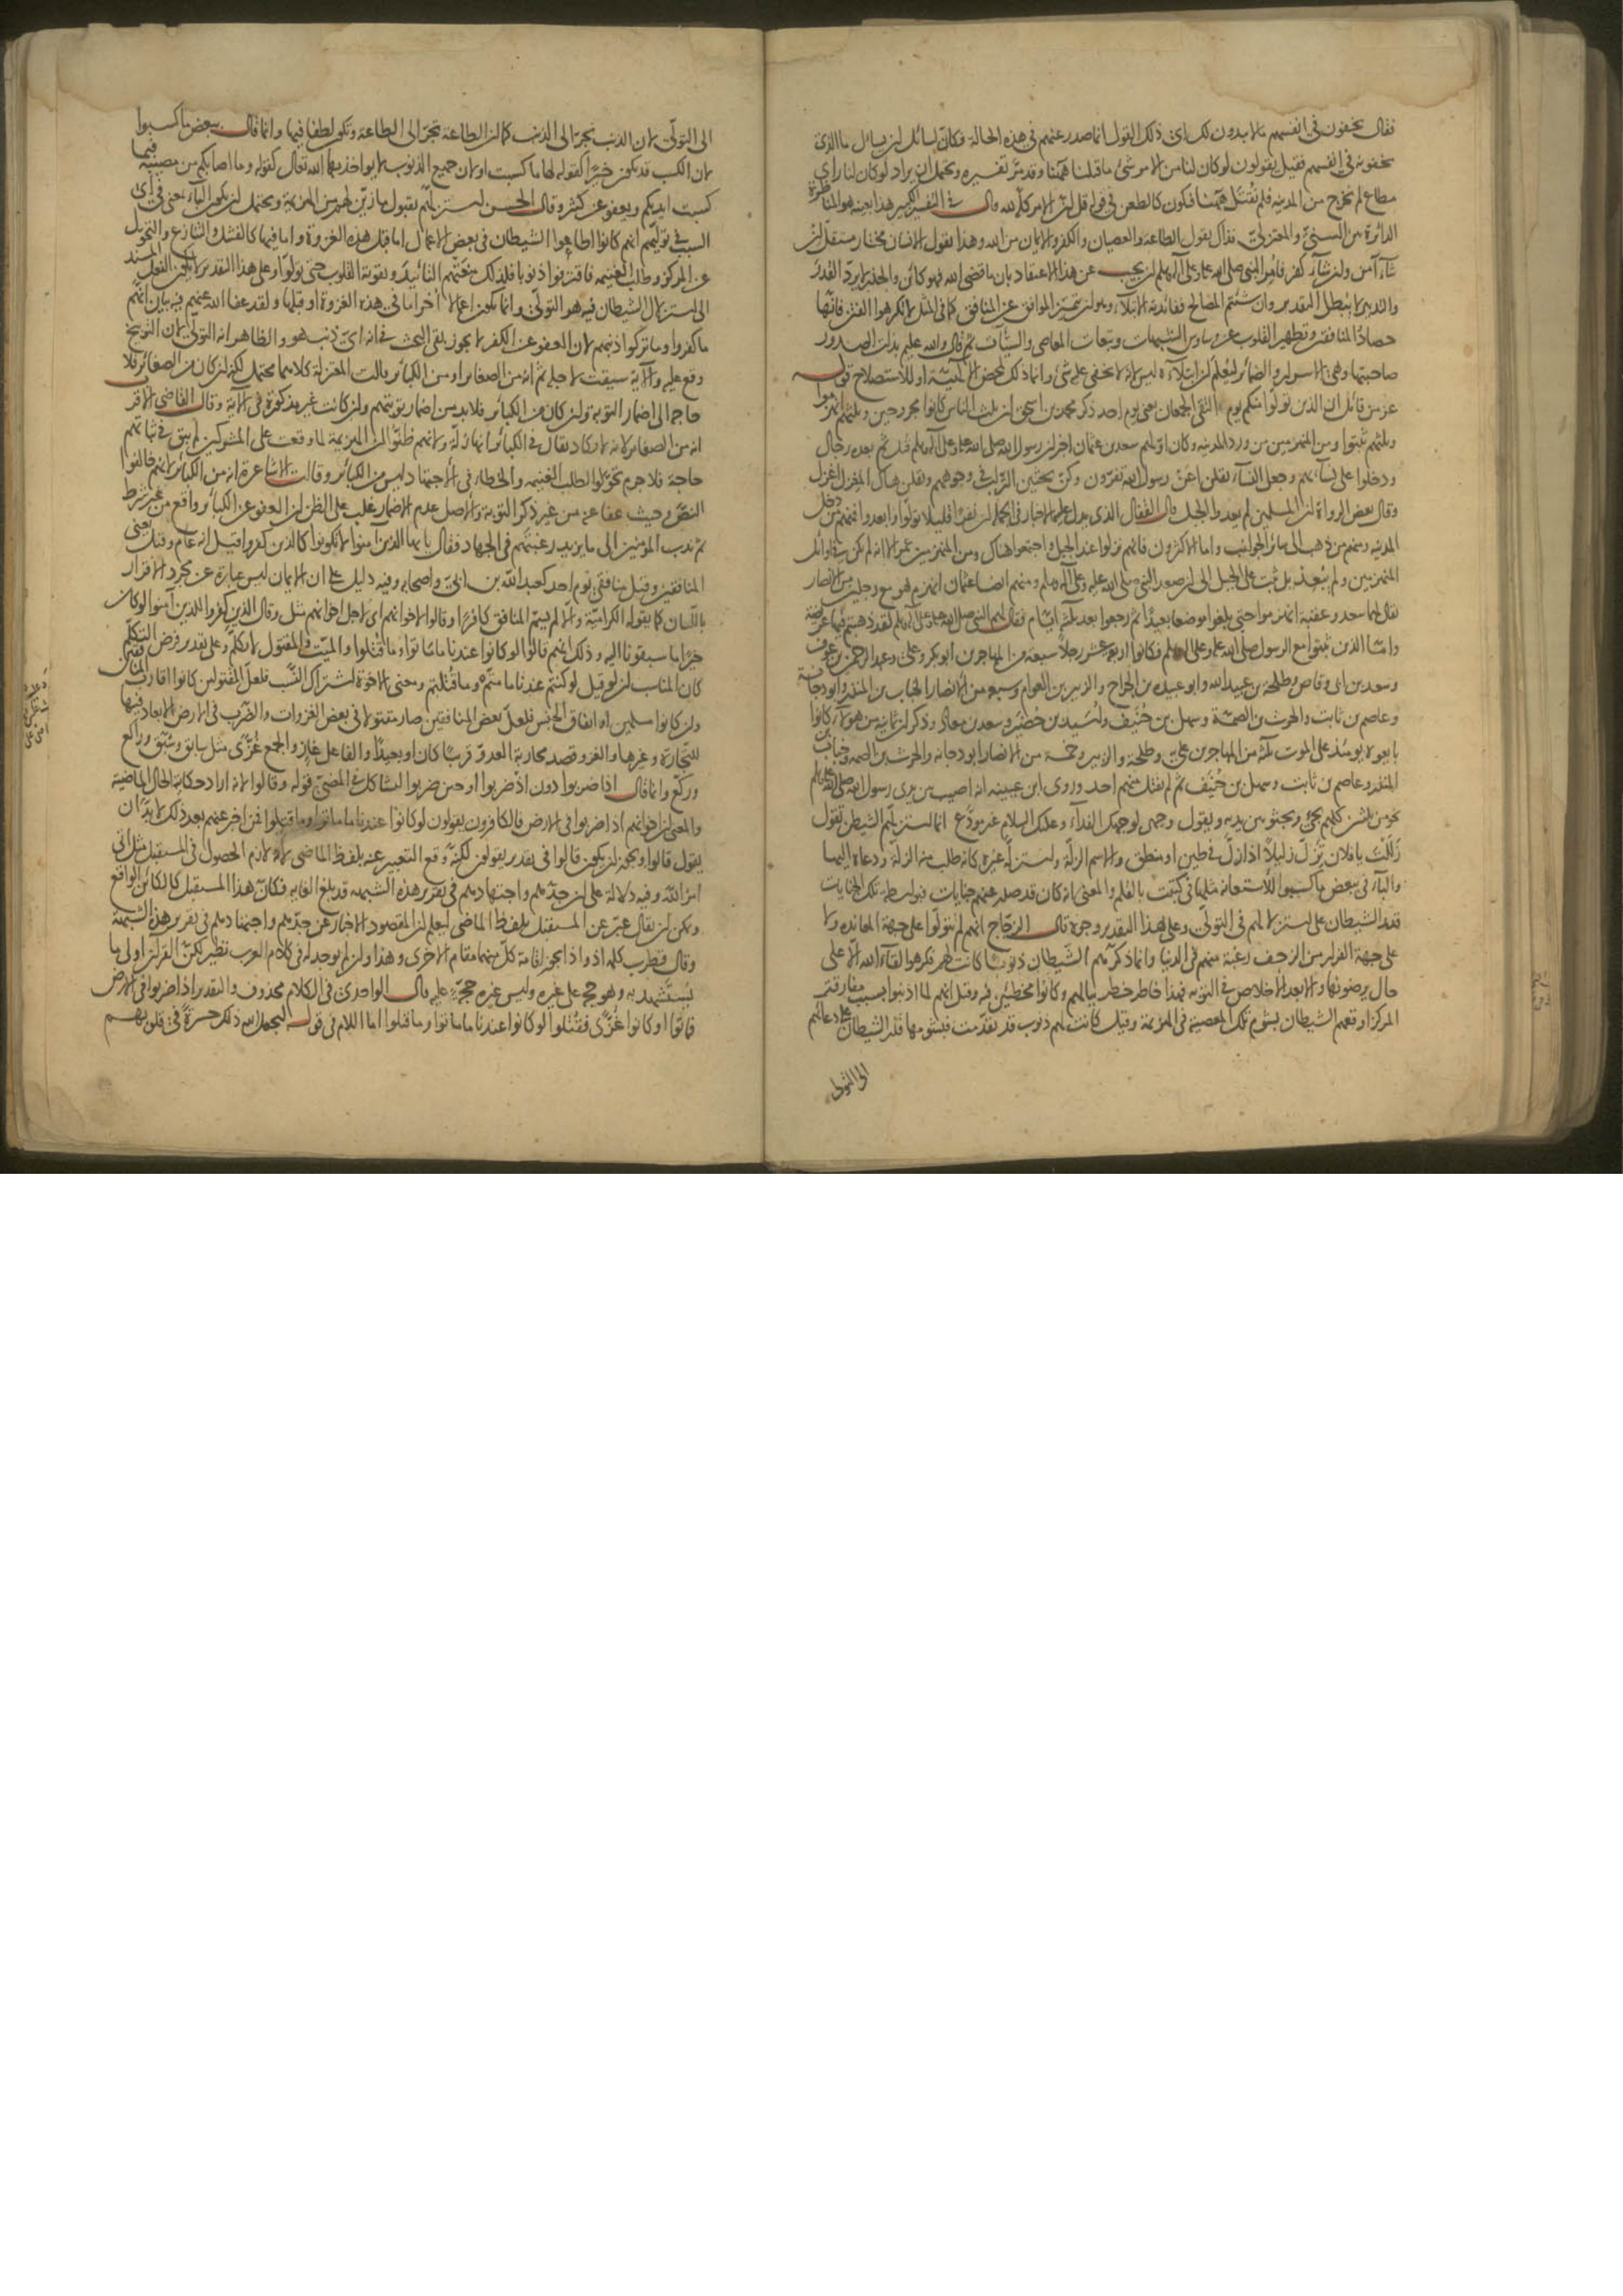 فقال يخفون في انفسهم ما لا يبدون لك اي ذلك القول انما صدر عنهم في هذه الحالة فكان لسائل ان يسال ما الذي
يخفونه في انفسهم فقيل يقولون لو كان لنا من الامر شئ ما قتلنا ههنا وقد مر تفسيره ويحتمل ان يراد لو كان لنا راي
مطاع لم نخرج من المدينة فلم نقتل ههنا فيكون كالطعن في قوله قل ان الامر كله لله قال في التفسير الكبير هذا بعينه هو المناظرة
الدائرة بين السني والمعتزلي فذاك يقول الطاعة والعصيان والكفر والايمان من الله وهذا يقول الانسان مختار مستقل ان
شاء آمن وان شاء كفر فامر النبي صلى الله عليه وعلى آله وسلم ان يجيب عن هذا الاعتقاد بان ما قضى الله فهو كائن والحذر لا يرد القدر
والتدبير لا يبطل التقدير وان شئتم المصالح ففائدته الابتلاء وهو ان يتميز الموافق عن المنافق كما في المثل لا تكرهوا الفتن فانها
حصاد المنافقين وتطهير القلوب عن وساوس الشبهات وتبعات المعاصي والسيآت ثم قال والله عليم بذات الصدور
صاحبتها وهي الاسرار والضمائر ليعلم ان ابتلاءه ليس لانه لا يخفى عليه شئ وانما ذلك لمحض الالهية او للاستصلاح قوله
عز من قائل ان الذين تولوا منكم يوم التقى الجمعان يعني يوم احد ذكر محمد بن اسحق ان ثلث الناس كانوا مجروحين وثلثهم انهزموا
وثلثهم ثبتوا ومن المنهزمين من ورد المدينة وكان اولهم سعد بن عثمان اخبر ان رسول الله صلى الله عليه وعلى آله وسلم قتل ثم بعده رجال
ودخلوا على نسائهم وجعل النساء يقلن اعن رسول الله تفرون وكن يحثين التراب في وجوههم ويقلن هاك المغزل اغزل
وقال بعض الرواة ان المسلمين لم يعدوا الجبل قال القفال الذي يدل عليه الاخبار في الجملة ان نفرا قليلا تولوا وابعدوا فمنهم من دخل
المدينة ومنهم من ذهب الى سائر الجوانب واما الاكثرون فانهم نزلوا عند الجبل واجتمعوا هناك ومن المنهزمين عمر الا انه لم يكن في اوائل
المنهزمين ولم يبعد بل ثبت على الجبل الى ان صعد النبي صلى الله عليه وعلى آله وسلم ومنهم ايضا عثمان انهزم هو مع رجلين من الانصار
يقال لهما سعد وعقبة انهزموا حتى بلغوا موضعا بعيدا ثم رجعوا بعد ثلثة ايام فقال لهم النبي صلى الله عليه وعلى آله وسلم لقد ذهبتم فيها عريضة
واما الذين ثبتوا مع الرسول صلى الله عليه وعلى آله وسلم فكانوا اربعة عشر رجلا سبعة من المهاجرين ابو بكر وعلي وعبد الرحمن بن عوف
وسعد بن ابي وقاص وطلحة بن عبيد الله وابو عبيدة بن الجراح والزبير بن العوام وسبعة من الانصار الحباب بن المنذر وابو دجانة
وعاصم بن ثابت والحرث بن الصمة وسهل بن حنيف واسيد بن حضير وسعد بن معاذ وذكر ان ثمانية من هؤلاء كانوا
بايعوه يومئذ على الموت ثلثة من المهاجرين علي وطلحة والزبير وخمسة من الانصار ابو دجانة والحرث بن الصمة وحباب بن
المنذر وعاصم بن ثابت وسهل بن حنيف ثم لم يقتل منهم احد وروى ابن عيينة انه اصيب بين يدي رسول الله صلى الله عليه وسلم
نحو من ثلثين كلهم يجئ ويجثو بين يديه ويقول وجهي لوجهك الفداء وعليك السلام غير مودع انما استزلهم الشيطان تقول
زللت يا فلان تزل زليلا اذا زل في طين او منطق والاسم الزلة واستزله غيره كانه طلب منه الزلة ودعاه اليها
والباء في ببعض ما كسبوا للاستعانة مثلها في كتبت بالقلم والمعنى انه كان قد صدر عنهم جنايات فبواسطة تلك الجنايات
قدر الشيطان على استزلالهم في التولي وعلى هذا التقدير وجوه قال الزجاج انهم لم يتولوا على جهة المعاندة ولا
على جهة الفرار من الزحف رغبة منهم في الدنيا وانما ذكرهم الشيطان ذنوبا كانت لهم فكرهوا لقاء الله الا على
حال يرضونها والا بعد الاخلاص في التوبة فهذا خاطر خطر ببالهم وكانوا مخطئين فيه وقيل انهم لما اذنبوا بسبب مفارقة
المركز اوقعهم الشيطان بشؤم تلك المعصية في الهزيمة وقيل كانت لهم ذنوب قد تقدمت فبشؤمها قدر الشيطان على دعائهم
الى التولي
الى التولي لان الذنب يجر الى الذنب كما ان الطاعة تجر الى الطاعة وتكون لطفا فيها وانما قال ببعض ما كسبوا
لان الكسب قد يكون خيرا كقوله لها ما كسبت او لان جميع الذنوب لا يواخذ بها الله تعالى كقوله وما اصابكم من مصيبة فبما
كسبت ايديكم ويعفو عن كثير وقال الحسن استزلهم بقبول ما زين لهم من الهزيمة ويحتمل ان يكون الباء بمعنى في اي
السبب في توليهم انهم كانوا اطاعوا الشيطان في بعض الاعمال اما قبل هذه الغزوة واما فيها كالفشل والتنازع والتحويل
عن المركز وطلب الغنيمة فاقترفوا ذنوبا فلذلك منعتهم التائيد وتقوية القلوب حتى تولوا وعلى هذا التقدير لا يكون الفعل المسند
الى استزلال الشيطان فيه هو التولي وانما يكون اعمالا اخر اما في هذه الغزوة او قبلها ولقد عفا الله عنهم فيه بيان انهم
ما كفروا وما تركوا دينهم لان العفو عن الكفر لا يجوز بقي البحث في انه اي ذنب هو والظاهر انه التولي لان التوبيخ
وقع عليه والاية سيقت لاجله ثم انه من الصغائر او من الكبائر قالت المعتزلة كلاهما محتمل لكنه ان كان من الصغائر فلا
حاجة الى اضمار التوبة وان كان من الكبائر فلا بد من اضمار توبتهم وان كانت غير مذكورة في الاية وقال القاضي الاقرب
انه من الصغائر لانه لا يكاد يقال في الكبائر انها زلة ولانهم ظنوا ان الهزيمة لما وقعت على المشركين لم يبق في ثباتهم
حاجة فلا جرم تحولوا لطلب الغنيمة والخطاء في الاجتهاد ليس من الكبائر وقالت الاشاعرة انه من الكبائر لانهم خالفوا
النص وحيث عفا عنه من غير ذكر التوبة والاصل عدم الاضمار غلب على الظن ان العفو عن الكبائر واقع من غير شرط
ثم ندب المؤمنين الى ما يزيد رغبتهم في الجهاد فقال يا ايها الذين آمنوا لا تكونوا كالذين كفروا قيل انه عام وقيل يعني
المنافقين وقيل منافقي يوم احد كعبد الله بن ابي واصحابه وفيه دليل على ان الايمان ليس عبارة عن مجرد الاقرار
باللسان كما يقوله الكرامية والا لم يسم المنافق كافرا وقالوا لاخوانهم اي لاجل اخوانهم مثل وقال الذين كفروا للذين آمنوا لو كان
خيرا ما سبقونا اليه وذلك انهم قالوا لو كانوا عندنا ما ماتوا وما قتلوا والميت والمقتول لا يكلم وعلى تقدير فرض التكلم
كان المناسب ان لو قيل لو كنتم عندنا ما متم وما قتلتم ومعنى الاخوة اشتراك النسب فلعل المقتولين كانوا اقارب المنافقين
وان كانوا مسلمين او اتفاق الجنس فلعل بعض المنافقين صار مقتولا في بعض الغزوات والضرب في الارض الابعاد فيها
للتجارة وغيرها والغزو قصد محاربة العدو قريبا كان او بعيدا والفاعل غاز والجمع غزى مثل سابق وسبق وراكع
وركع وانما قال اذا ضربوا دون اذ ضربوا او حين ضربوا ليشاكل في المضي قوله وقالوا لانه اراد حكاية الحال الماضية
والمعنى ان اخوانهم اذا ضربوا في الارض فالكافرون يقولون لو كانوا عندنا ما ماتوا وما قتلوا فمن اخبر عنهم بعد ذلك لا بد ان
يقول قالوا ويجوز ان يكون قالوا في تقدير يقولون لكنه وقع التعبير عنه بلفظ الماضي لانه لازم الحصول في المستقبل مثل اتى
امر الله وفيه دلالة على ان جدهم واجتهادهم في تقرير هذه الشبهة قد بلغ الغاية فكان هذا المستقبل كالكائن الواقع
ويمكن ان يقال عبر عن المستقبل بلفظ الماضي ليعلم ان المقصود الاخبار عن جدهم واجتهادهم في تقرير هذه الشبهة
وقال قطرب كلمة اذ واذا يجوز اقامة كل منهما مقام الاخرى وهذا وان لم يوجد له في كلام العرب نظير لكن القرآن اولى ما
يستشهد به وهو حجة على غيره وليس غيره حجة عليه قال الواحدي في الكلام محذوف والتقدير اذا ضربوا في الارض
فماتوا او كانوا غزى فقتلوا لو كانوا عندنا ما ماتوا وما قتلوا اما اللام في قوله ليجعل الله ذلك حسرة في قلوبهم